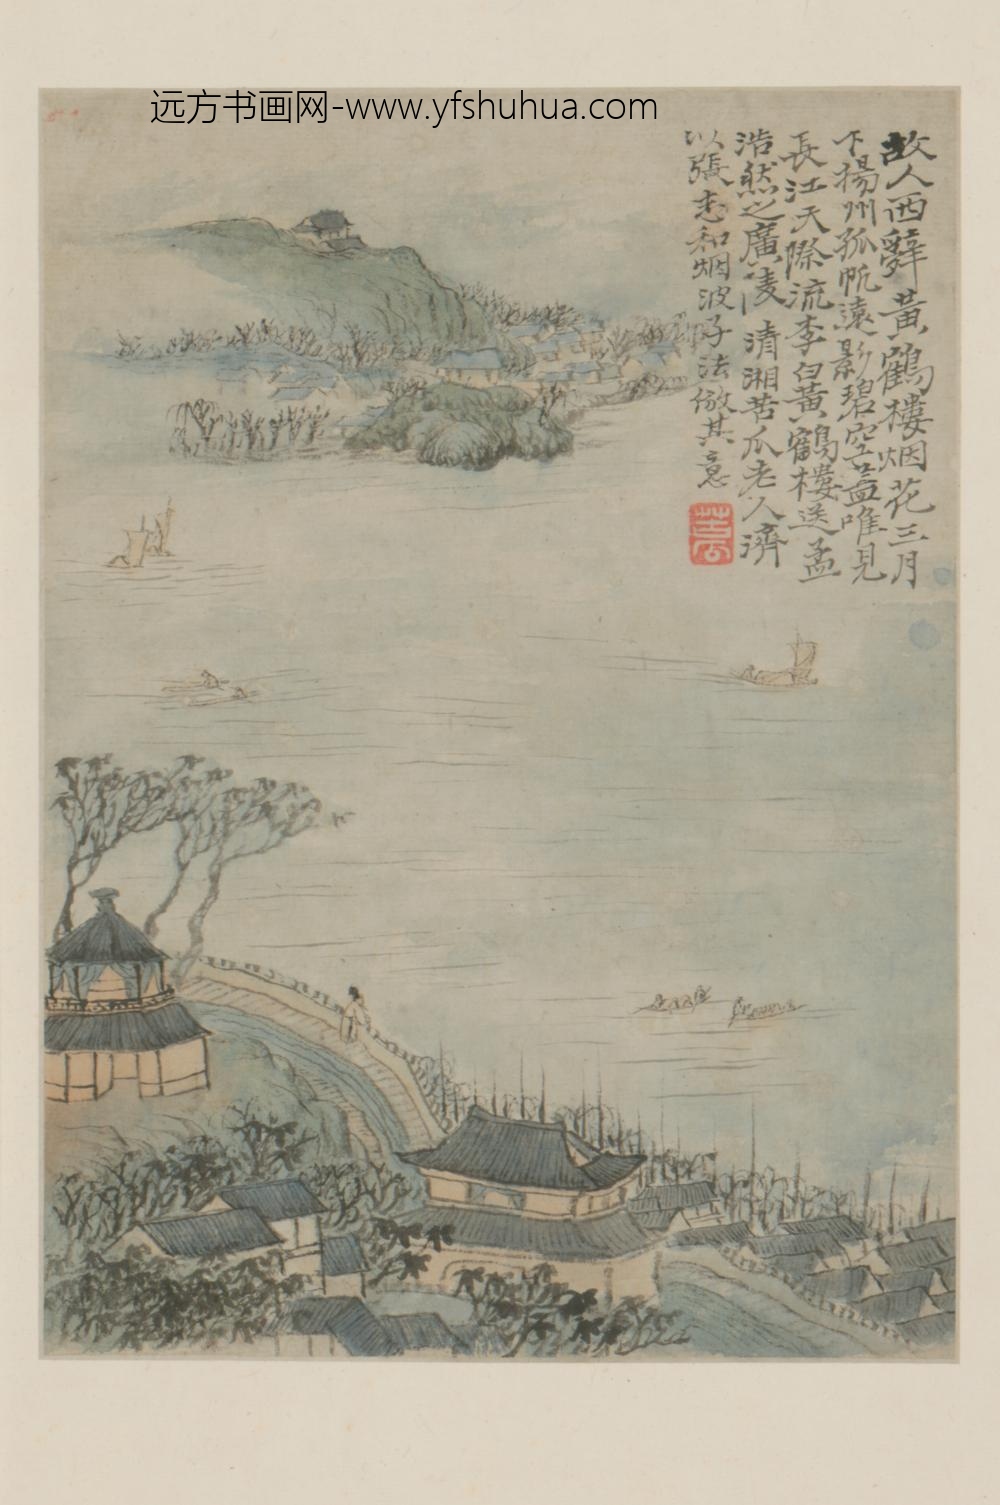 远方书画网-www.yfshuhua.com
故人西辭黃鶴樓烟花三月
下揚州孤帆遠影碧空盡唯見
長江天際流李白黃鶴樓送孟
浩然之廣陵清湘苦瓜老人濟
以張志和烟波子法倣其意
苦瓜